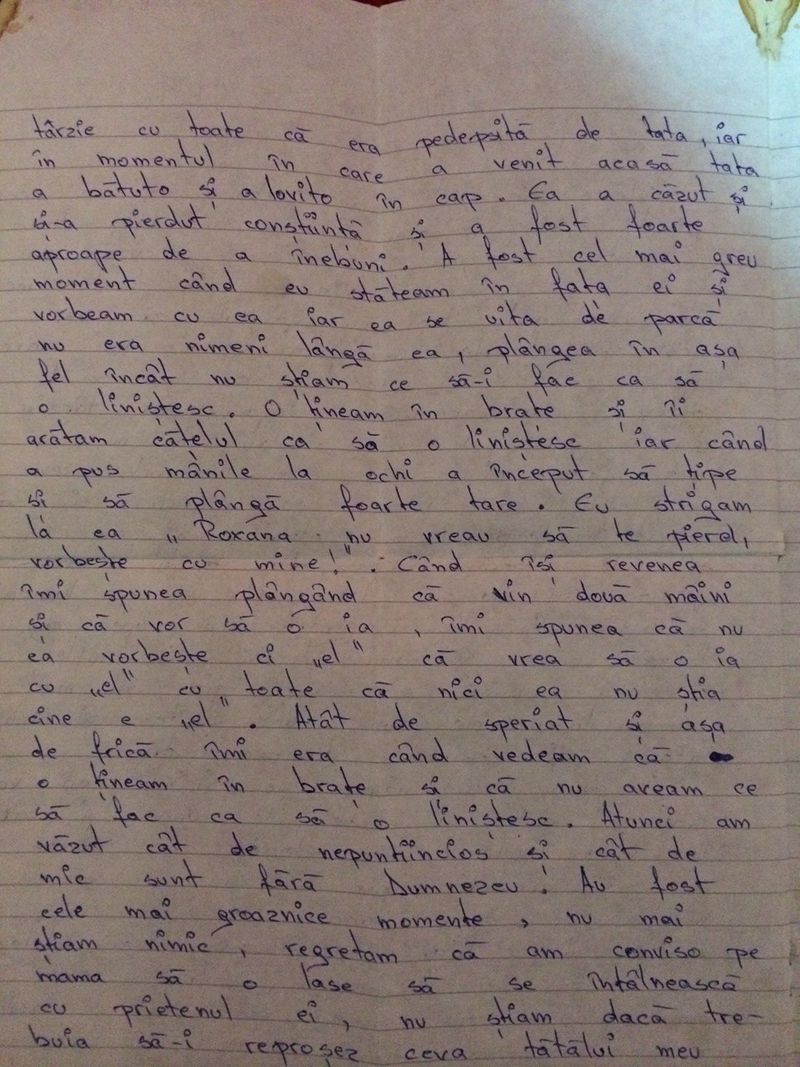 târzie cu toate că era pedepsită de tata, iar
în momentul în care a venit acasă tata
a bătuto și a lovito în cap. Ea a căzut și
și-a pierdut conștiință și a fost foarte
aproape de a înebuni. A fost cel mai greu
moment când eu stăteam în fața ei și
vorbeam cu ea iar ea se uita de parcă
nu era nimeni lângă ea, plângea în așa
fel încât nu știam ce să-i fac ca să
o liniștesc. O țineam în brațe și îi
arătam cățelul ca să o liniștesc iar când
a pus mânile la ochi a început să țipe
și să plângă foarte tare. Eu strigam
la ea „Roxana nu vreau să te pierd,
vorbește cu mine!". Când își revenea
îmi spunea plângând că vin două mâini
și că vor să o ia, îmi spunea că nu
ea vorbește ci „el" că vrea să o ia
cu „el" cu toate că nici ea nu știa
cine e „el". Atât de speriat și așa
de frică îmi era când vedeam că
o țineam în brațe și că nu aveam ce
să fac ca să o liniștesc. Atunci am
văzut cât de nepuntiincios și cât de
mic sunt fără Dumnezeu! Au fost
cele mai groaznice momente, nu mai
știam nimic, regretam că am conviso pe
mama să o lase să se întâlnească
cu prietenul ei, nu știam dacă tre-
buia să-i reproșez ceva tătălui meu